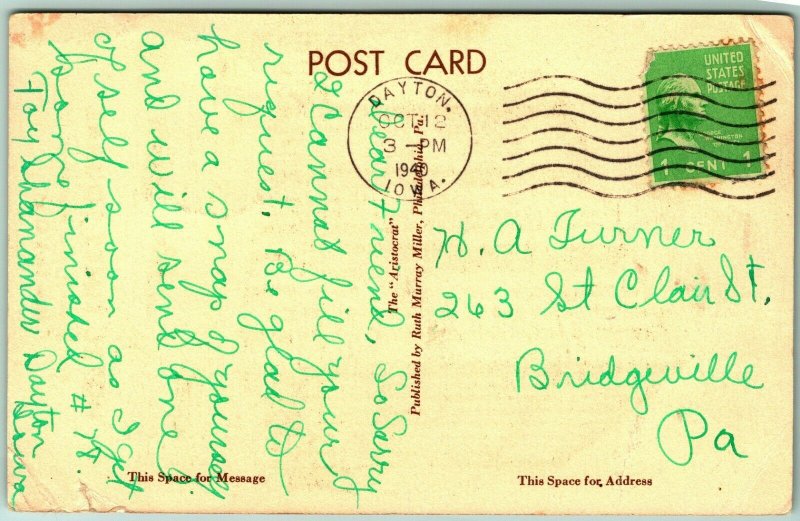 POST CARD
UNITED
STATES
POSTAGE
1 CENT 1
DAYTON.
OCT 12
3 - PM
1940
IOWA.
Dear Friend, So Sorry
I Cannot fill your
request. Be glad to
have a snap of yourself
and will send one
of self soon as I get
some finished #
Dayton
Iowa
The "Aristocrat"
Published by Ruth Murray Miller, Philadelphia, Pa.
H. A Turner
263 St Clair St.
Bridgeville
Pa
This Space for Message
This Space for Address